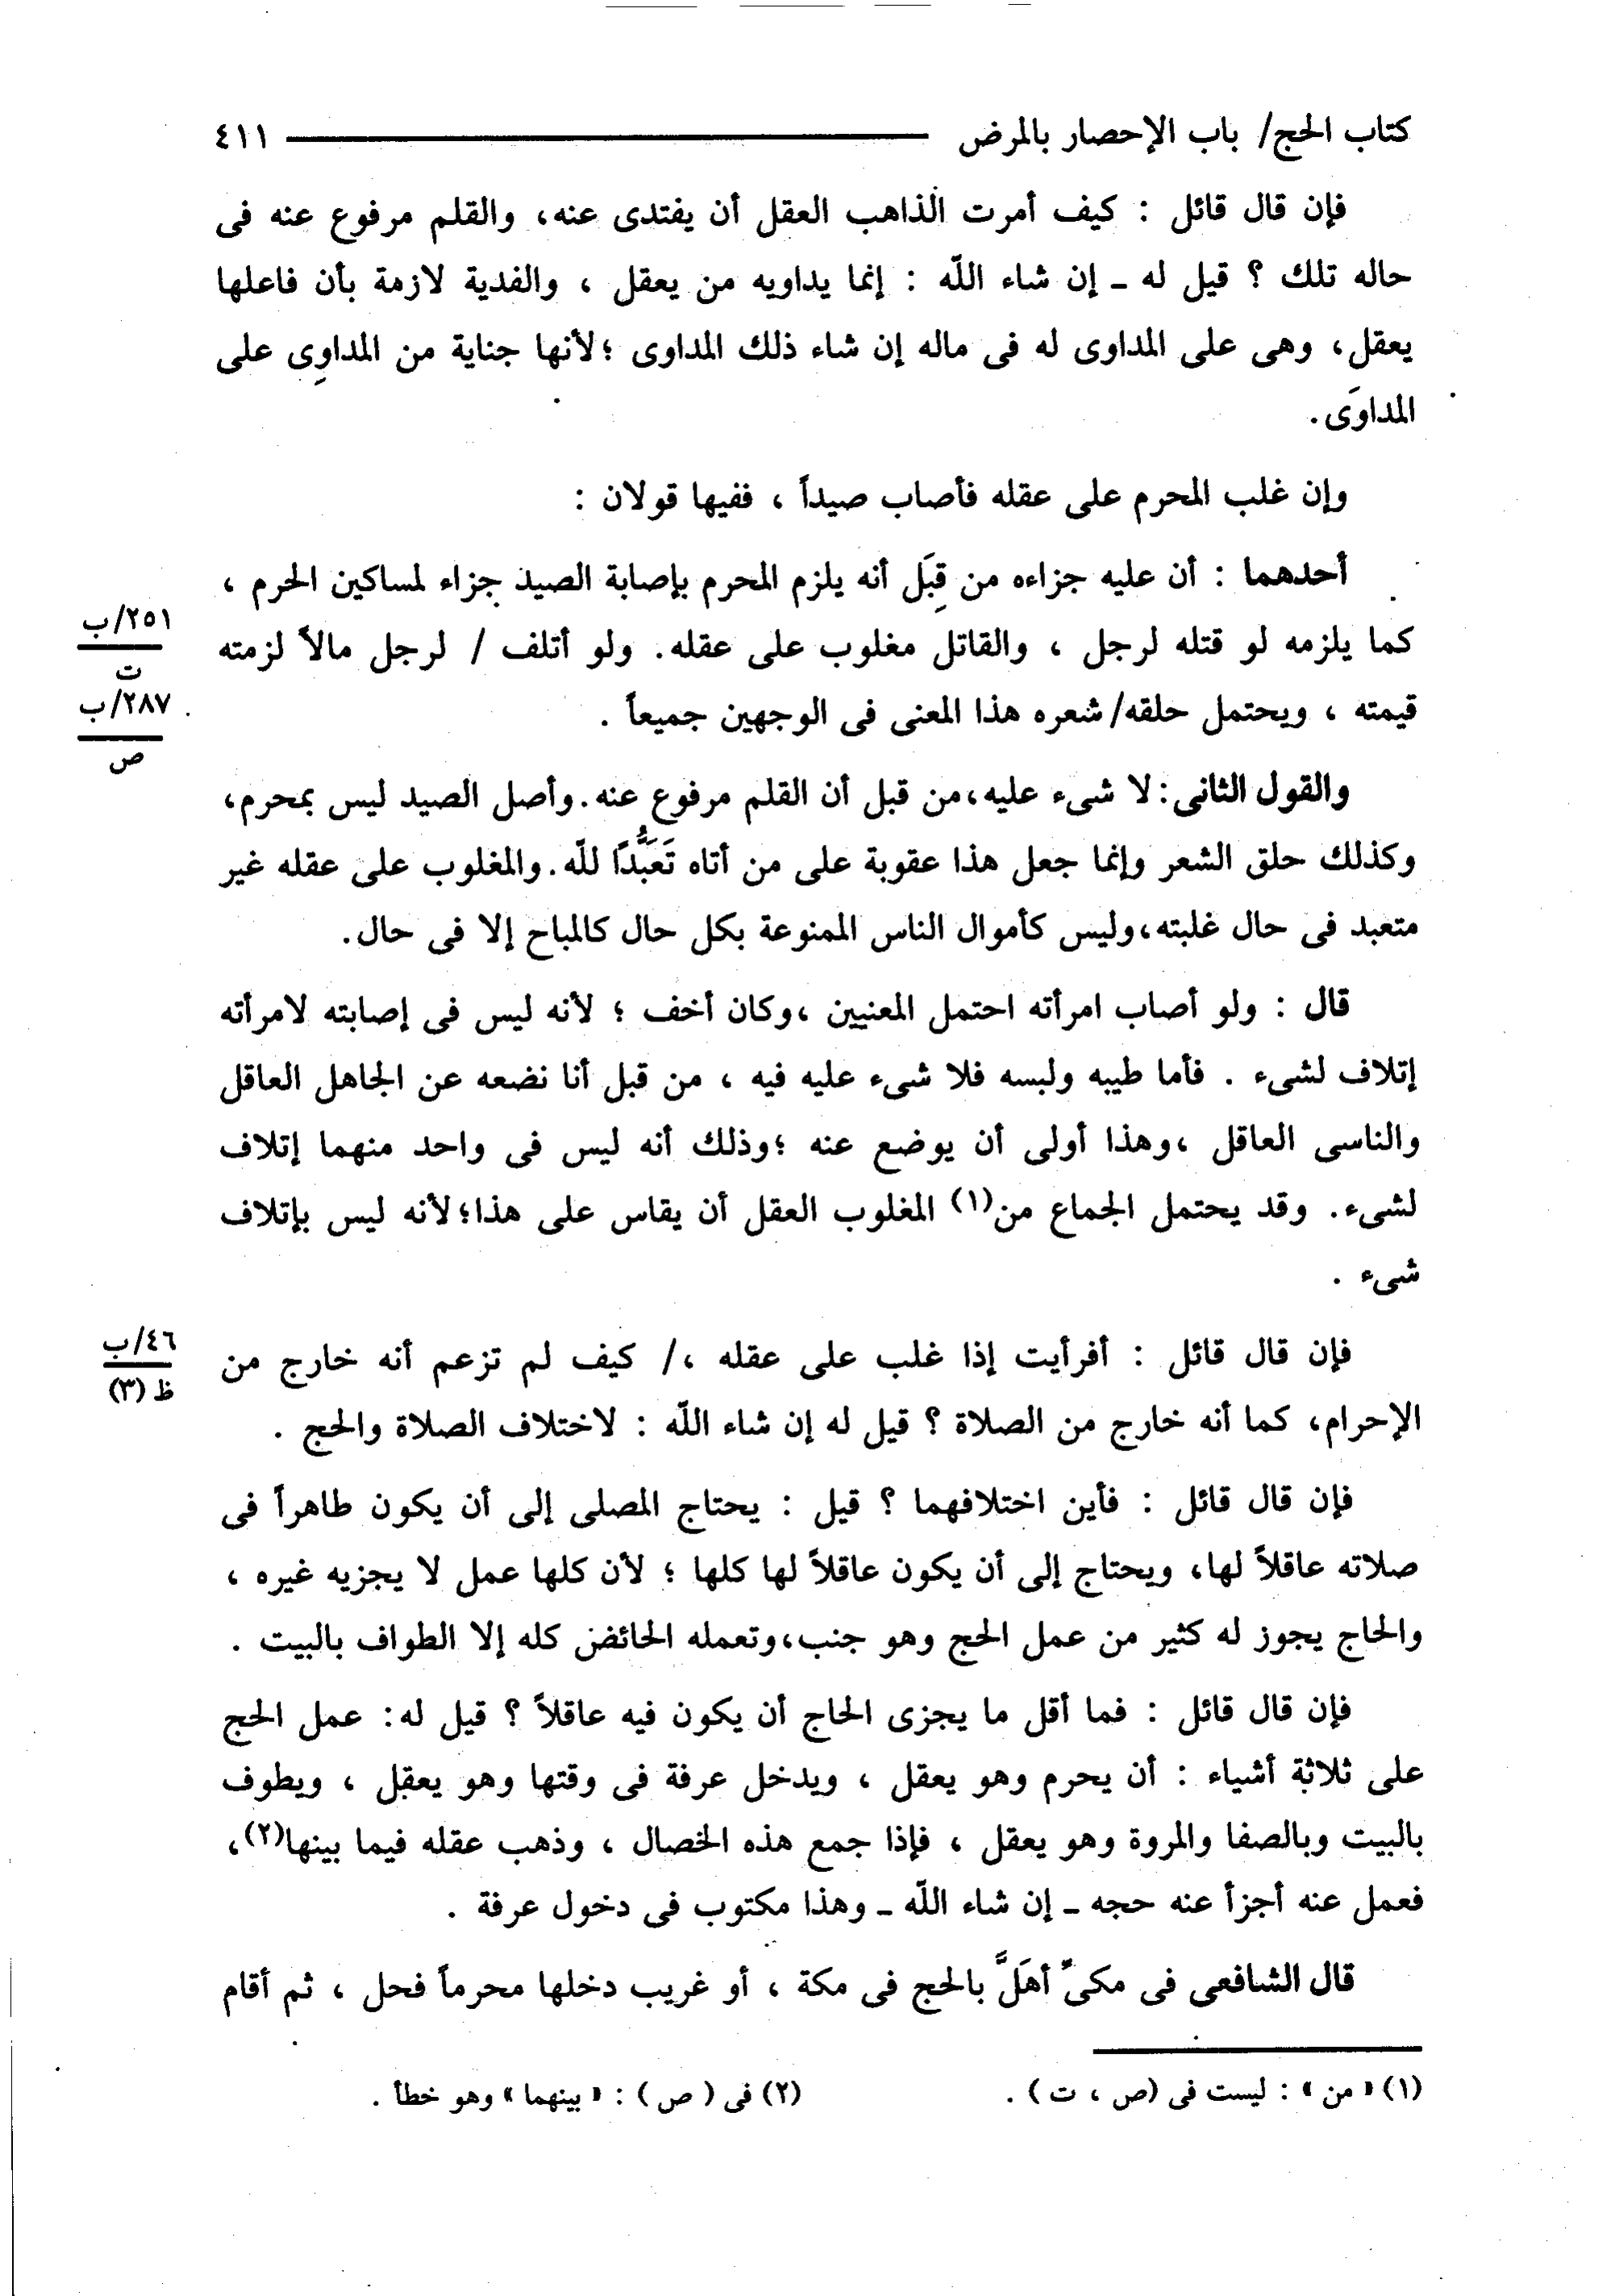 كتاب الحج/ باب الإحصار بالمرض ٤١١
فإن قال قائل : كيف أمرت الذاهب العقل أن يفتدى عنه، والقلم مرفوع عنه فى
حاله تلك ؟ قيل له ـ إن شاء اللّه : إنما يداويه من يعقل ، والفدية لازمة بأن فاعلها
يعقل، وهى على المداوى له فى ماله إن شاء ذلك المداوى ؛لأنها جناية من المداوِى على
المداوَى.
وإن غلب المحرم على عقله فأصاب صيداً ، ففيها قولان :
أحدهما : أن عليه جزاءه من قِبَل أنه يلزم المحرم بإصابة الصيد جزاء لمساكين الحرم ،
كما يلزمه لو قتله لرجل ، والقاتل مغلوب على عقله. ولو أتلف / لرجل مالاً لزمته
قيمته ، ويحتمل حلقه/ شعره هذا المعنى فى الوجهين جميعاً .
٢٥١/ب
ت
٢٨٧/ب
ص
والقول الثانى: لا شىء عليه،من قبل أن القلم مرفوع عنه.وأصل الصيد ليس بمحرم،
وكذلك حلق الشعر وإنما جعل هذا عقوبة على من أتاه تَعَبُّدًا للّه.والمغلوب على عقله غير
متعبد فى حال غلبته،وليس كأموال الناس الممنوعة بكل حال كالمباح إلا فى حال.
قال : ولو أصاب امرأته احتمل المعنيين ،وكان أخف ؛ لأنه ليس فى إصابته لامرأته
إتلاف لشىء . فأما طيبه ولبسه فلا شىء عليه فيه ، من قبل أنا نضعه عن الجاهل العاقل
والناسى العاقل ،وهذا أولى أن يوضع عنه ؛وذلك أنه ليس فى واحد منهما إتلاف
لشىء. وقد يحتمل الجماع من(١) المغلوب العقل أن يقاس على هذا؛لأنه ليس بإتلاف
شىء .
فإن قال قائل : أفرأيت إذا غلب على عقله ،/ كيف لم تزعم أنه خارج من
٤٦/ب
ظ (٣)
الإحرام، كما أنه خارج من الصلاة ؟ قيل له إن شاء اللّه : لاختلاف الصلاة والحج .
فإن قال قائل : فأين اختلافهما ؟ قيل : يحتاج المصلى إلى أن يكون طاهراً فى
صلاته عاقلاً لها، ويحتاج إلى أن يكون عاقلاً لها كلها ؛ لأن كلها عمل لا يجزيه غيره ،
والحاج يجوز له كثير من عمل الحج وهو جنب،وتعمله الحائض كله إلا الطواف بالبيت .
فإن قال قائل : فما أقل ما يجزى الحاج أن يكون فيه عاقلاً ؟ قيل له: عمل الحج
على ثلاثة أشياء : أن يحرم وهو يعقل ، ويدخل عرفة فى وقتها وهو يعقل ، ويطوف
بالبيت وبالصفا والمروة وهو يعقل ، فإذا جمع هذه الخصال ، وذهب عقله فيما بينها(٢)،
فعمل عنه أجزأ عنه حجه ـ إن شاء اللّه ـ وهذا مكتوب فى دخول عرفة .
قال الشافعى فى مكىٍّ أهَلَّ بالحج فى مكة ، أو غريب دخلها محرماً فحل ، ثم أقام
(١) « من » : ليست فى (ص ، ت ) . (٢) فى ( ص ) : « بينهما » وهو خطأ .